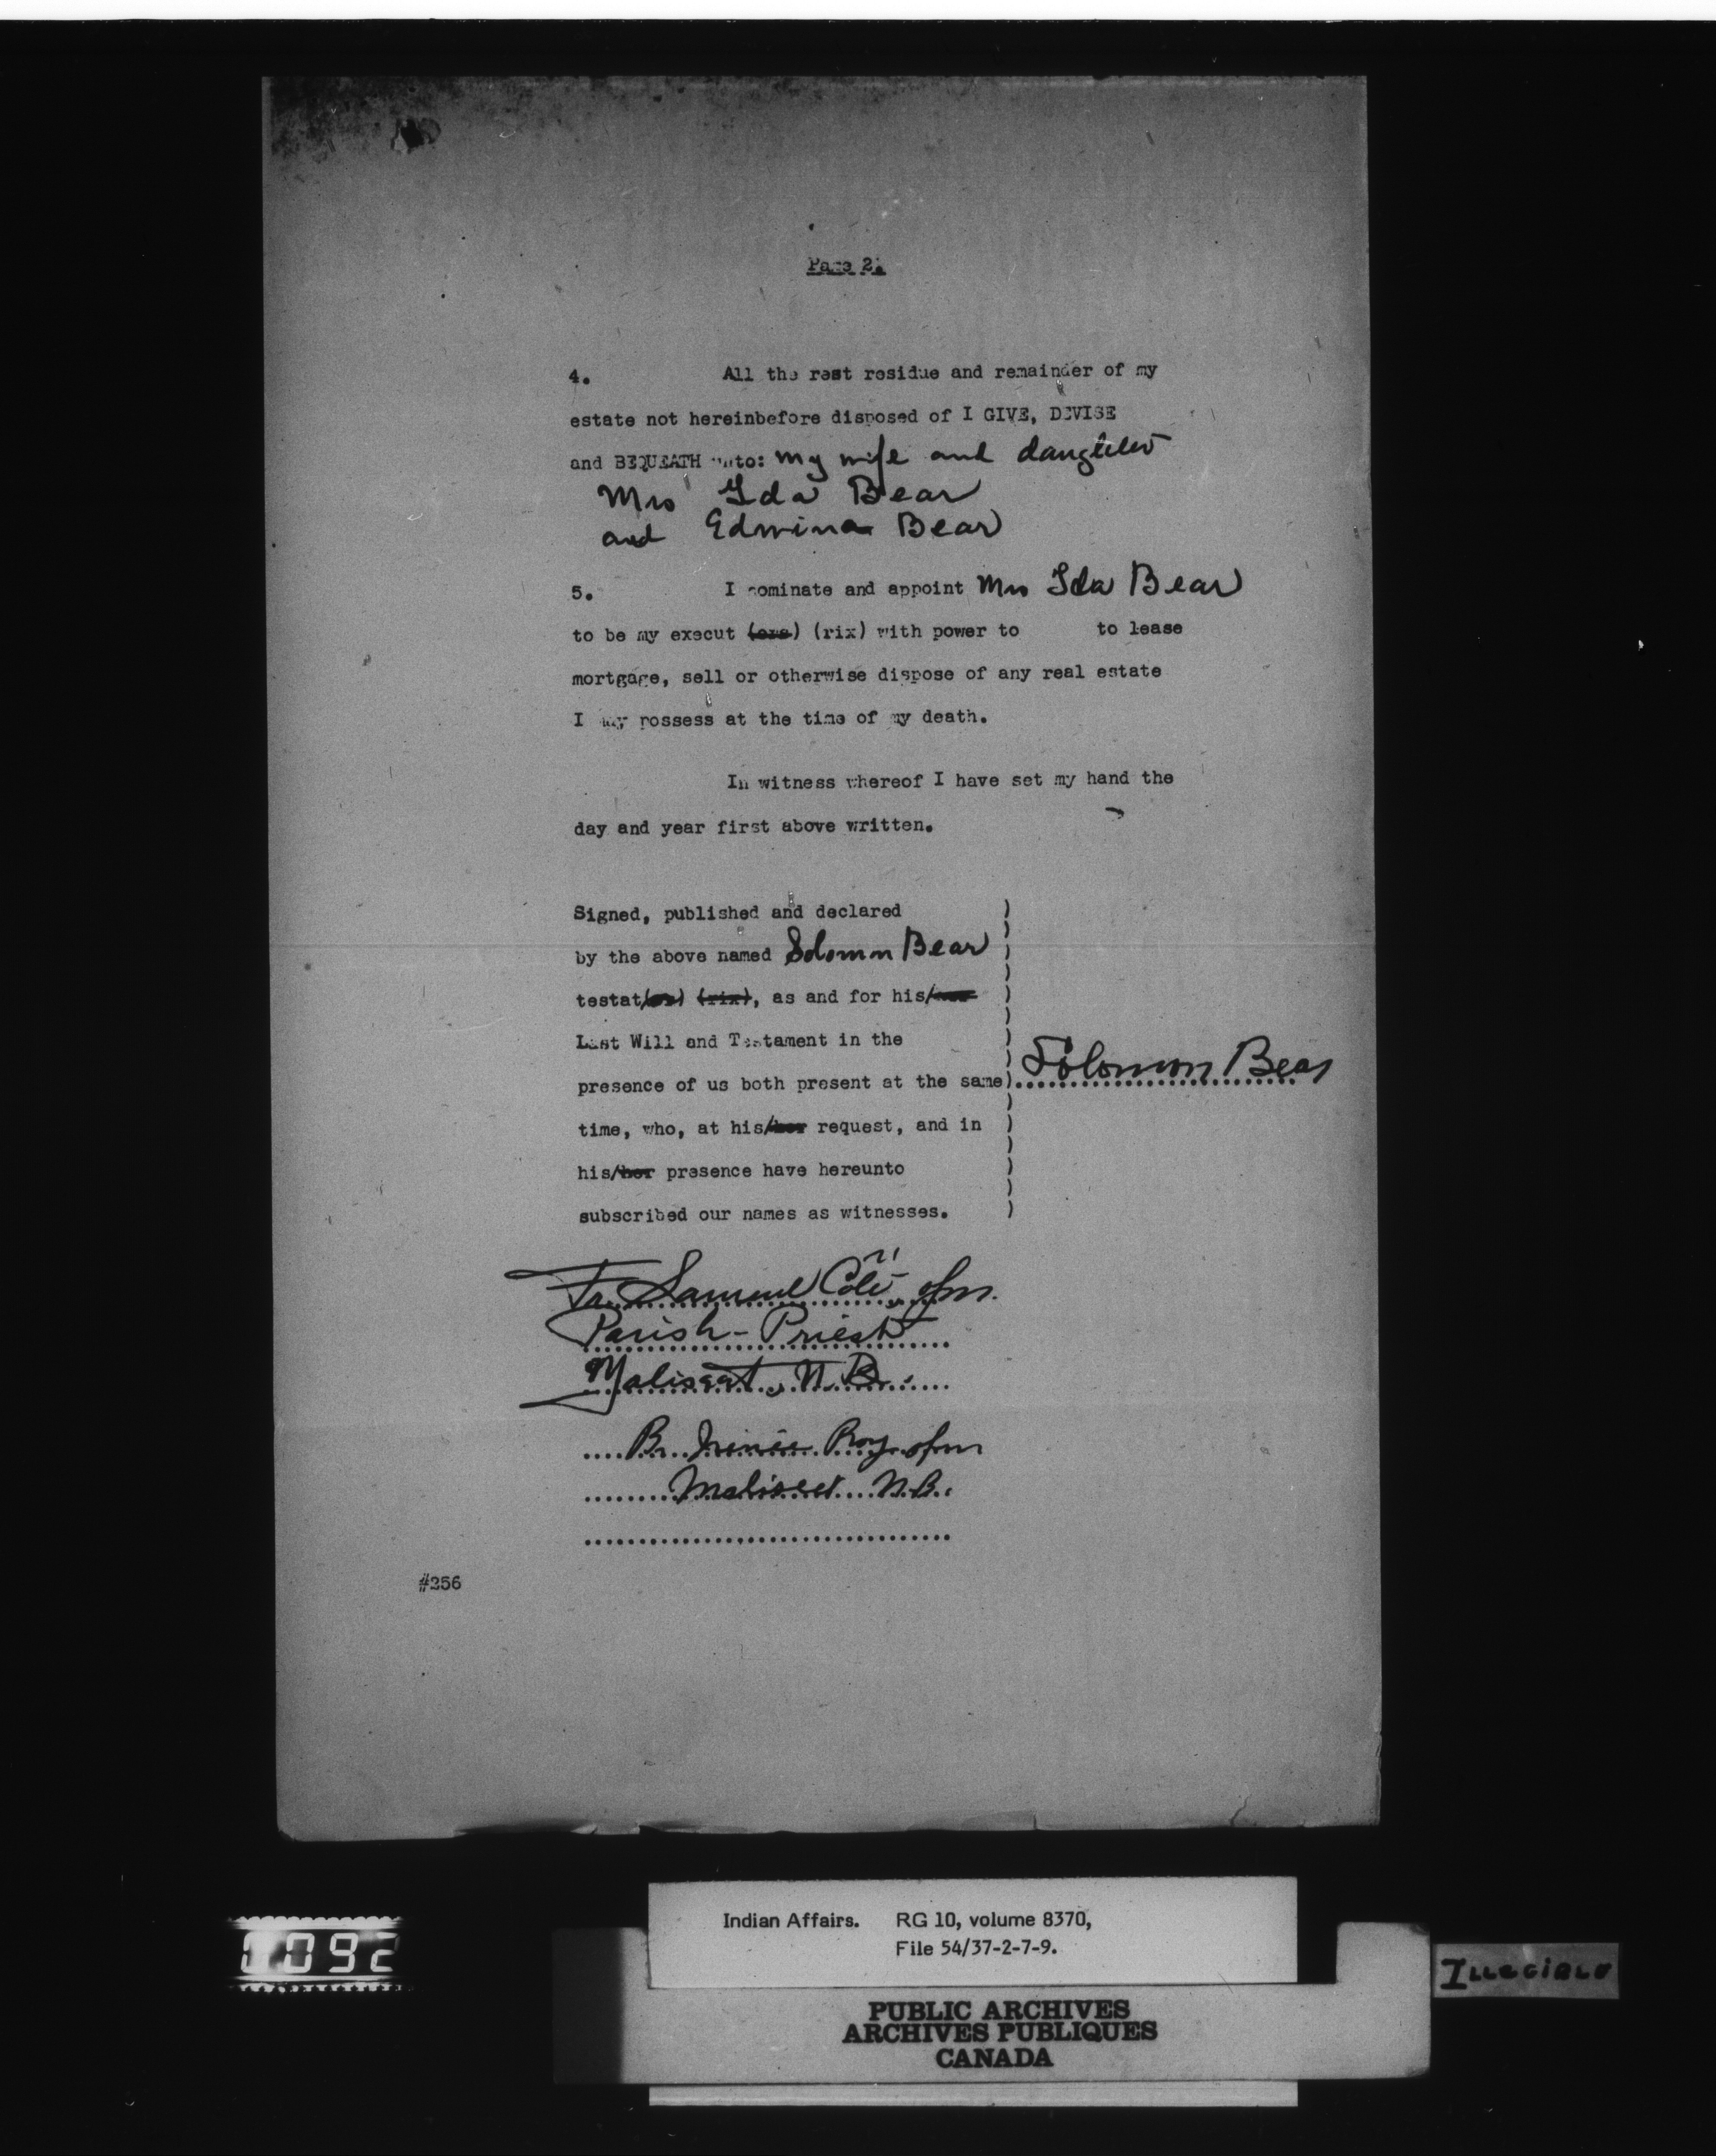 Page 2.
4. All the rest residue and remainder of my
estate not hereinbefore disposed of I GIVE, DEVISE
and BEQUEATH unto: my wife and daughter
Mrs Ida Bear
and Edwina Bear
5. I nominate and appoint Mrs Ida Bear
to be my execut (ors) (rix) with power to to lease
mortgage, sell or otherwise dispose of any real estate
I may possess at the time of my death.
In witness whereof I have set my hand the
day and year first above written.
Signed, published and declared )
by the above named Solomon Bear )
testat(or) (rix), as and for his/her )
Last Will and Testament in the )
presence of us both present at the same) Solomon Bear
time, who, at his/her request, and in )
his/her presence have hereunto )
subscribed our names as witnesses. )
Fr. Samuel Coté, ofm.
Parish-Priest
Maliseet, N.B.
Br. Irénée Roy ofm
Maliseet N.B.
#256
0092
Indian Affairs. RG 10, volume 8370,
File 54/37-2-7-9.
Illegible
PUBLIC ARCHIVES
ARCHIVES PUBLIQUES
CANADA